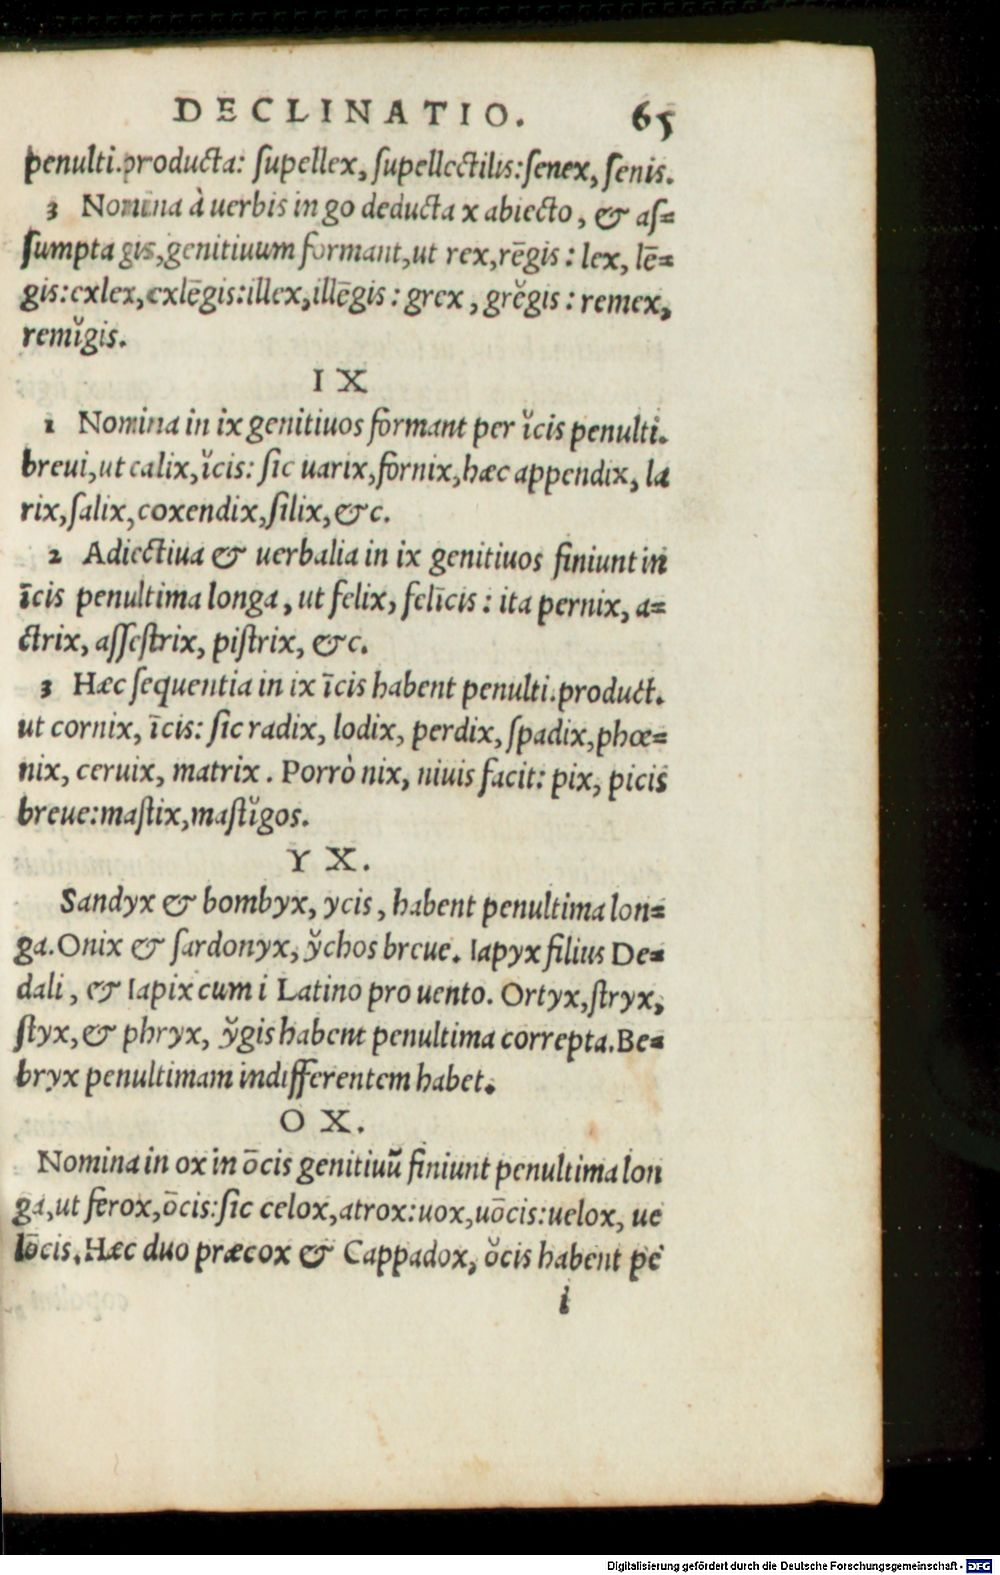 DECLINATIO. 65
penulti.producta: ſupellex, ſupellectilis:ſenex, ſenis.
3 Nomina à uerbis in go deducta x abiecto, & aſ=
ſumpta gis,genitiuum formant,ut rex,rēgis : lex, lē=
gis:exlex,exlēgis:illex,illēgis : grex , grĕgis : remex,
remĭgis.
IX
1 Nomina in ix genitiuos formant per ĭcis penulti.
breui,ut calix,ĭcis: ſic uarix,fornix,hæc appendix, la
rix,ſalix,coxendix,ſilix,&c.
2 Adiectiua & uerbalia in ix genitiuos finiunt in
īcis penultima longa , ut felix, felīcis : ita pernix, a=
ctrix, aſſeſtrix, piſtrix, &c.
3 Hæc ſequentia in ix īcis habent penulti.product.
ut cornix, īcis: ſic radix, lodix, perdix, ſpadix,phœ=
nix, ceruix, matrix . Porrò nix, niuis facit: pix, picis
breue:maſtix,maſtĭgos.
YX.
Sandyx & bombyx, ycis , habent penultima lon=
ga.Onix & ſardonyx, y̆chos breue. Iapyx filius De=
dali , & Iapix cum i Latino pro uento. Ortyx,ſtryx,
ſtyx, & phryx, y̆gis habent penultima correpta.Be=
bryx penultimam indifferentem habet.
OX.
Nomina in ox in ōcis genitiuū finiunt penultima lon
ga,ut ferox,ōcis:ſic celox,atrox:uox,uōcis:uelox, ue
lōcis. Hæc duo præcox & Cappadox, ŏcis habent pe
i
Digitalisierung gefördert durch die Deutsche Forschungsgemeinschaft - DFG